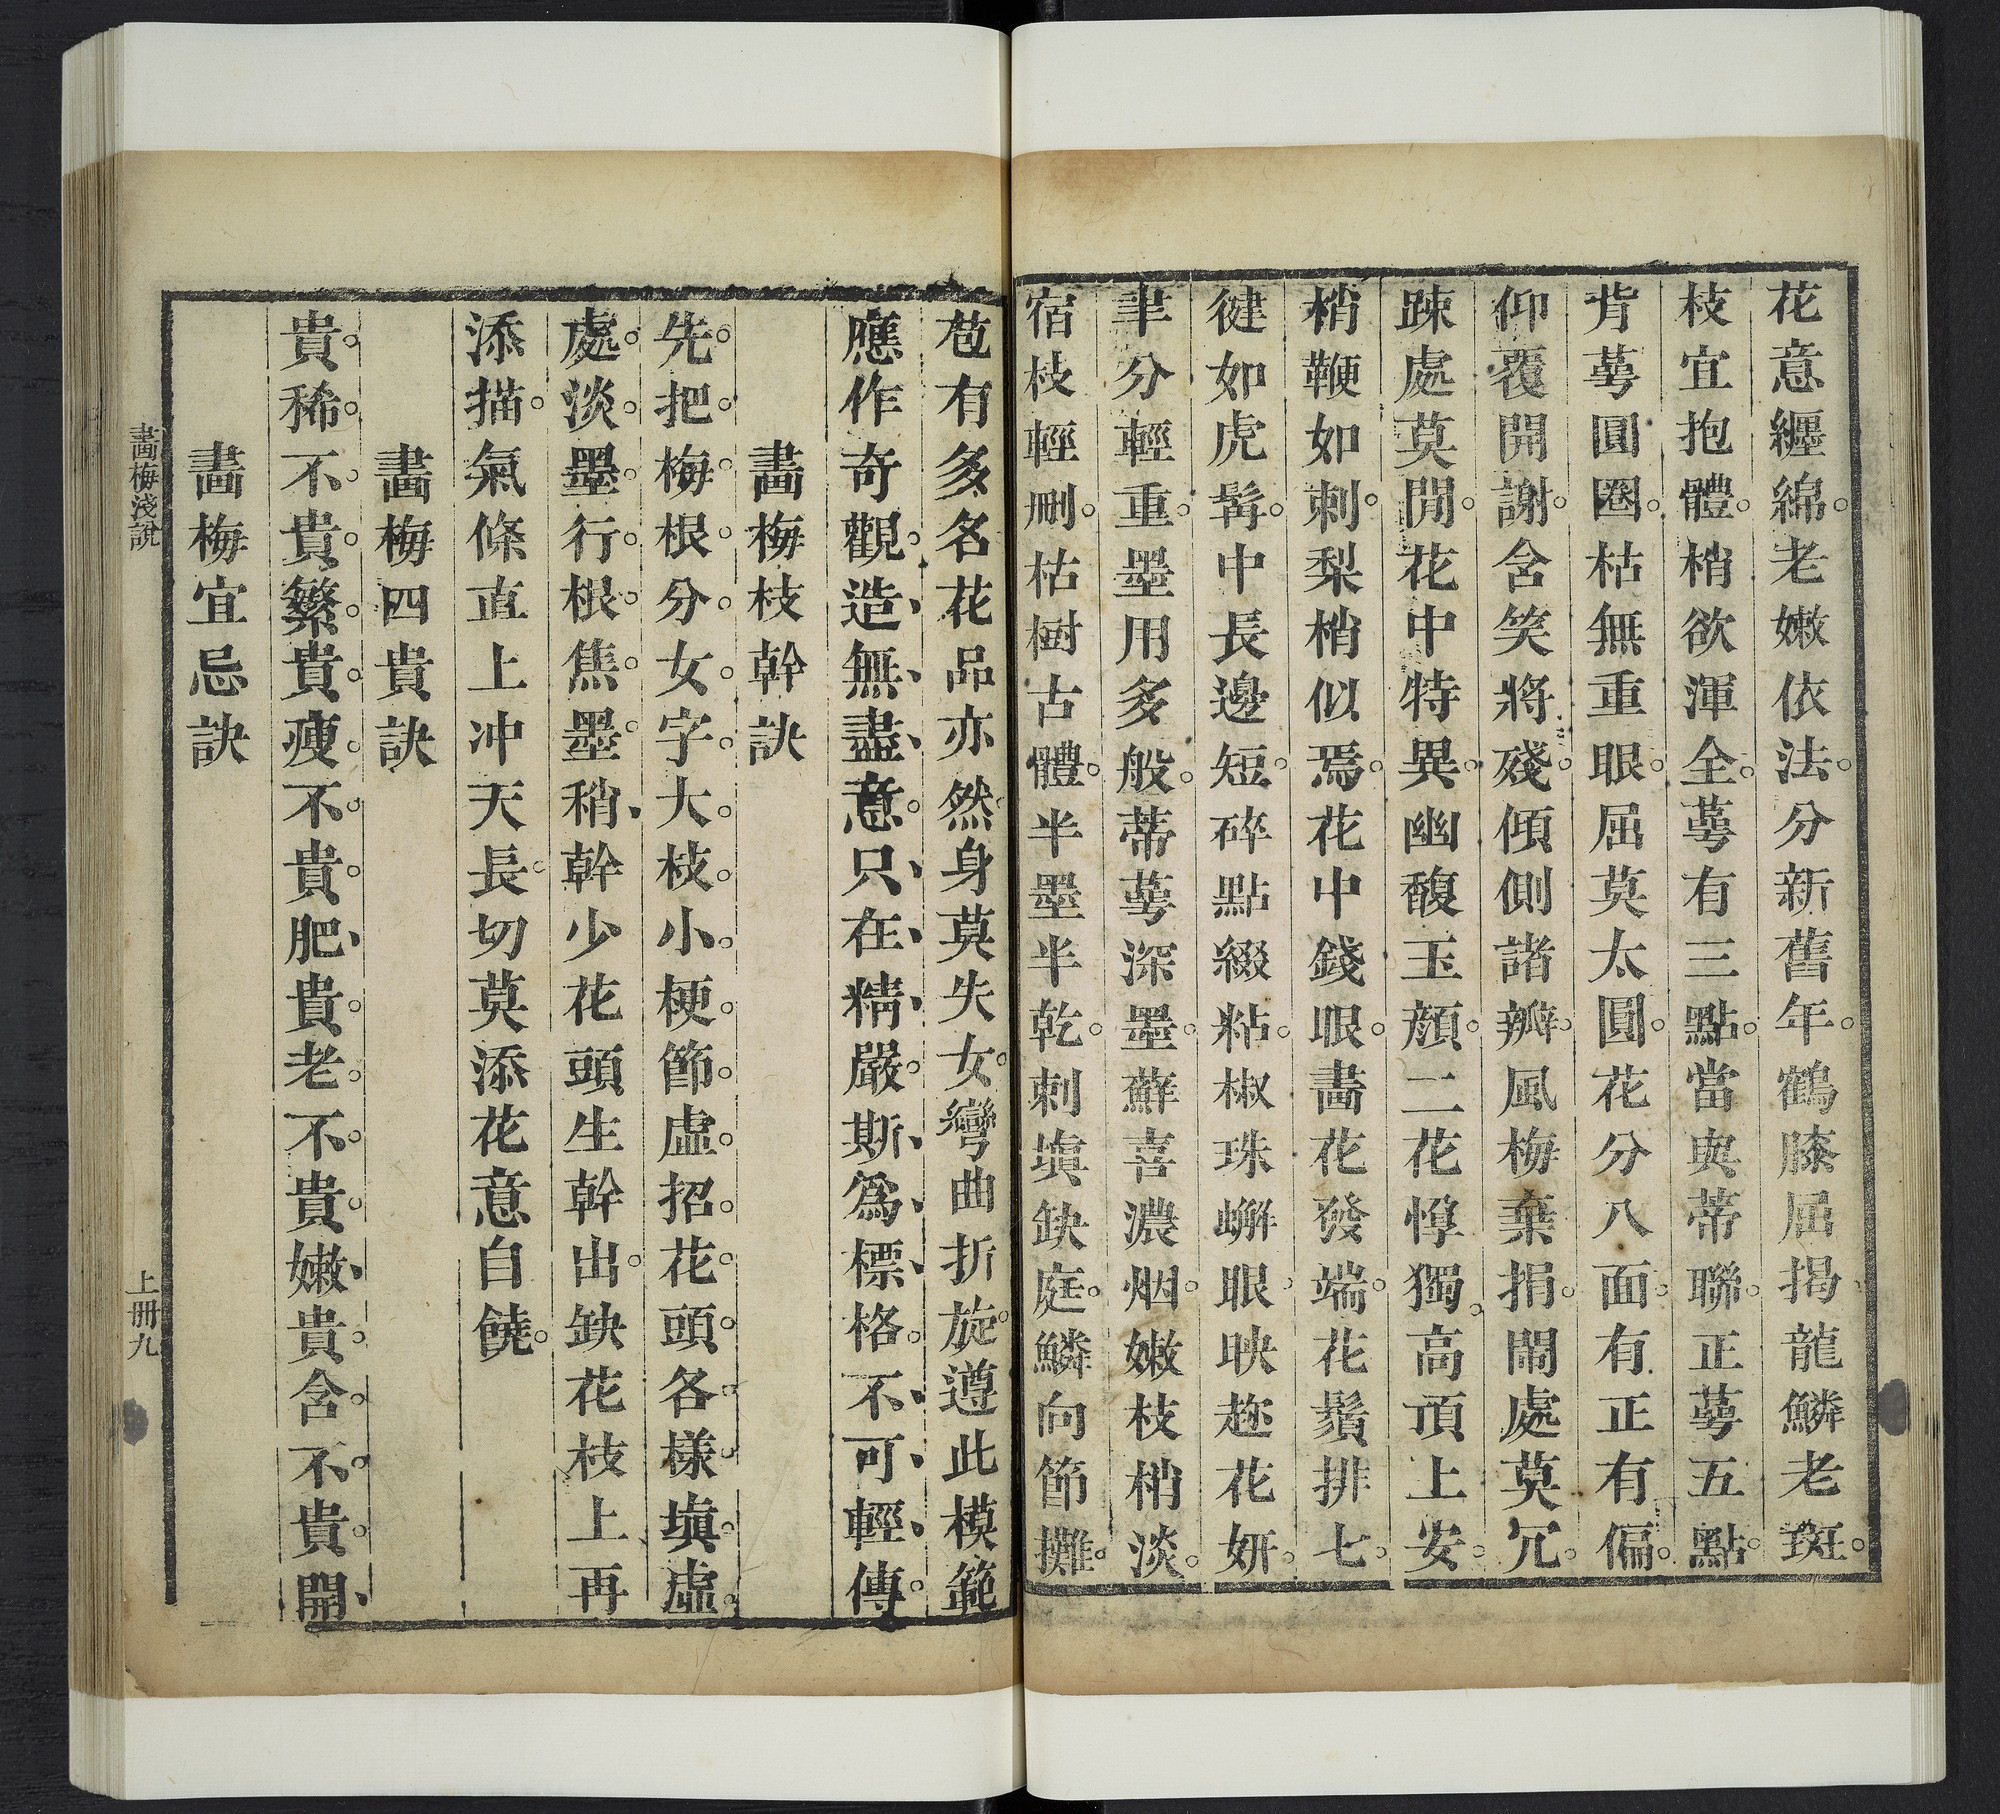 花意纏綿。老嫩依法。分新舊年。鶴膝屈揭。龍鱗老斑。
枝宜抱體。梢欲渾全。萼有三點。當與蒂聯。正萼五點。
背萼圓圈。枯無重眼。屈莫太圓。花分八面。有正有偏。
仰覆開謝。含笑將殘。傾側諸瓣。風梅棄捐。鬧處莫冗。
踈處莫閒。花中特異。幽馥玉顏。二花惇獨。高頂上安。
梢鞭如刺。梨梢似焉。花中錢眼。畫花發端。花鬚排七。
健如虎髯。中長邊短。碎點綴粘。椒珠蠏眼。映趂花妍。
筆分輕重。墨用多般。蒂萼深墨。蘚喜濃烟。嫩枝梢淡。
宿枝輕刪。枯樹古體。半墨半乾。刺塡缺庭。鱗向節攤。
苞有多名花品亦然。身莫失女。彎曲折旋。遵此模範
應作奇觀。造、無、盡、意。只、在、精、嚴。斯、爲、標、格。不、可、輕、傳。
畫梅枝幹訣
先。把。梅。根。分。女。字。大。枝。小。梗。節。虛。招。花。頭。各。樣。塡。虛。
處。淡。墨。行。根。焦。墨。稍、幹少花頭生幹出。缺花枝上再
添描。氣條直上冲天長。切莫添花意自饒。
畫梅四貴訣
貴。稀。不。貴。繁。貴。瘦。不。貴。肥、貴。老。不。貴。嫩、貴。含。不。貴。開、
畫梅宜忌訣
畫梅淺說
上冊九